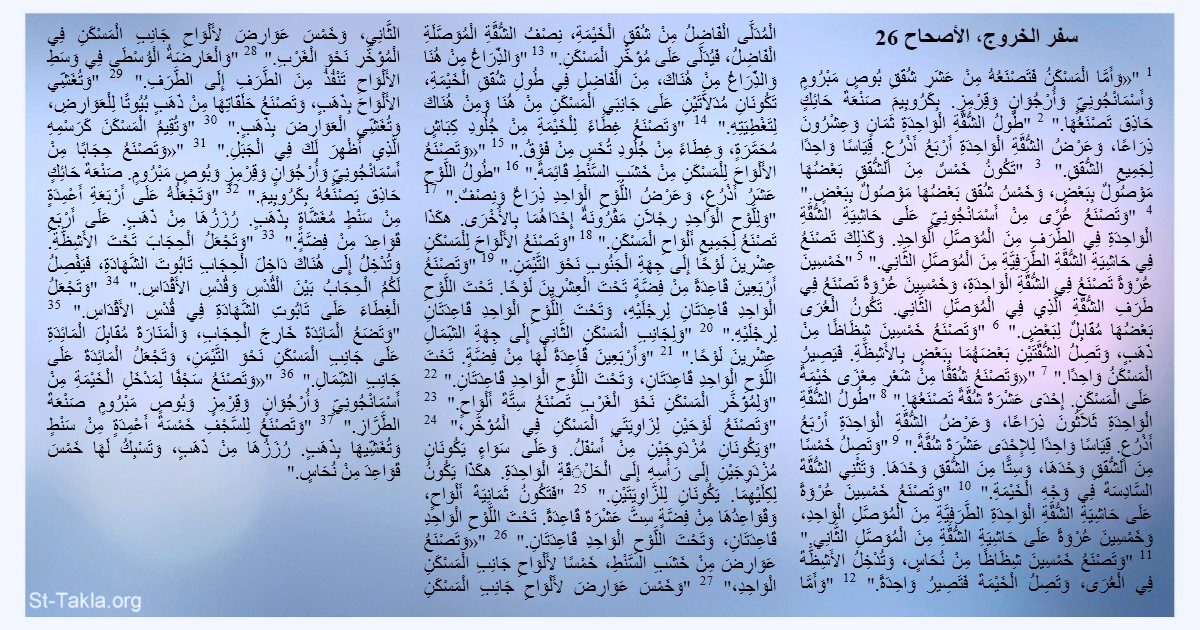 سفر الخروج، الأصحاح 26
1 "«وَأَمَّا الْمَسْكَنُ فَتَصْنَعُهُ مِنْ عَشَرِ شُقَقِ بُوصٍ مَبْرُومٍ
وَأَسْمَانْجُونِيٍّ وَأُرْجُوَانٍ وَقِرْمِزٍ. بِكَرُوبِيمَ صَنْعَةَ حَائِكٍ
حَاذِق تَصْنَعُهَا." 2 "طُولُ الشُّقَّةِ الْوَاحِدَةِ ثَمَانٍ وَعِشْرُونَ
ذِرَاعًا، وَعَرْضُ الشُّقَّةِ الْوَاحِدَةِ أَرْبَعُ أَذْرُعٍ. قِيَاسًا وَاحِدًا
لِجَمِيعِ الشُّقَقِ." 3 "تَكُونُ خَمْسٌ مِنَ الشُّقَقِ بَعْضُهَا
مَوْصُولٌ بِبَعْضٍ، وَخَمْسُ شُقَق بَعْضُهَا مَوْصُولٌ بِبَعْضٍ."
4 "وَتَصْنَعُ عُرًى مِنْ أَسْمَانْجُونِيٍّ عَلَى حَاشِيَةِ الشُّقَّةِ
الْوَاحِدَةِ فِي الطَّرَفِ مِنَ الْمُوَصَّلِ الْوَاحِدِ. وَكَذلِكَ تَصْنَعُ
فِي حَاشِيَةِ الشُّقَّةِ الطَّرَفِيَّةِ مِنَ الْمُوَصَّلِ الثَّانِي." 5 "خَمْسِينَ
عُرْوَةً تَصْنَعُ فِي الشُّقَّةِ الْوَاحِدَةِ، وَخَمْسِينَ عُرْوَةً تَصْنَعُ فِي
طَرَفِ الشُّقَّةِ الَّذِي فِي الْمُوَصَّلِ الثَّانِي. تَكُونُ الْعُرَى
بَعْضُهَا مُقَابِلٌ لِبَعْضٍ." 6 "وَتَصْنَعُ خَمْسِينَ شِظَاظًا مِنْ
ذَهَبٍ، وَتَصِلُ الشُّقَّتَيْنِ بَعْضَهُمَا بِبَعْضٍ بِالأَشِظَّةِ. فَيَصِيرُ
الْمَسْكَنُ وَاحِدًا." 7 "«وَتَصْنَعُ شُقَقًا مِنْ شَعْرِ مِعْزَى خَيْمَةً
عَلَى الْمَسْكَنِ. إِحْدَى عَشْرَةَ شُقَّةً تَصْنَعُهَا." 8 "طُولُ الشُّقَّةِ
الْوَاحِدَةِ ثَلاَثُونَ ذِرَاعًا، وَعَرْضُ الشُّقَّةِ الْوَاحِدَةِ أَرْبَعُ
أَذْرُعٍ. قِيَاسًا وَاحِدًا لِلإِحْدَى عَشْرَةَ شُقَّةً." 9 "وَتَصِلُ خَمْسًا
مِنَ الشُّقَقِ وَحْدَهَا، وَسِتًّا مِنَ الشُّقَقِ وَحْدَهَا. وَتَثْنِي الشُّقَّةَ
السَّادِسَةَ فِي وَجْهِ الْخَيْمَةِ." 10 "وَتَصْنَعُ خَمْسِينَ عُرْوَةً
عَلَى حَاشِيَةِ الشُّقَّةِ الْوَاحِدَةِ الطَّرَفِيَّةِ مِنَ الْمُوَصَّلِ الْوَاحِدِ،
وَخَمْسِينَ عُرْوَةً عَلَى حَاشِيَةِ الشُّقَّةِ مِنَ الْمُوَصَّلِ الثَّانِي."
11 "وَتَصْنَعُ خَمْسِينَ شِظَاظًا مِنْ نُحَاسٍ، وَتُدْخِلُ الأَشِظَّةَ
فِي الْعُرَى، وَتَصِلُ الْخَيْمَةَ فَتَصِيرُ وَاحِدَةً." 12 "وَأَمَّا
الْمُدَلَّى الْفَاضِلُ مِنْ شُقَقِ الْخَيْمَةِ، نِصْفُ الشُّقَّةِ الْمُوَصَّلَةِ
الْفَاضِلُ، فَيُدَلَّى عَلَى مُؤَخَّرِ الْمَسْكَنِ." 13 "وَالذِّرَاعُ مِنْ هُنَا
وَالذِّرَاعُ مِنْ هُنَاكَ، مِنَ الْفَاضِلِ فِي طُولِ شُقَقِ الْخَيْمَةِ،
تَكُونَانِ مُدَلاَّتَيْنِ عَلَى جَانِبَيِ الْمَسْكَنِ مِنْ هُنَا وَمِنْ هُنَاكَ
لِتَغْطِيَتِهِ." 14 "وَتَصْنَعُ غِطَاءً لِلْخَيْمَةِ مِنْ جُلُودِ كِبَاشٍ
مُحَمَّرَةٍ، وَغِطَاءً مِنْ جُلُودِ تُخَسٍ مِنْ فَوْقُ." 15 "«وَتَصْنَعُ
الأَلْوَاحَ لِلْمَسْكَنِ مِنْ خَشَبِ السَّنْطِ قَائِمَةً." 16 "طُولُ اللَّوْحِ
عَشَرُ أَذْرُعٍ، وَعَرْضُ اللَّوْحِ الْوَاحِدِ ذِرَاعٌ وَنِصْفٌ." 17
"وَلِلَّوْحِ الْوَاحِدِ رِجْلاَنِ مَقْرُونَةٌ إِحْدَاهُمَا بِالأُخْرَى. هكَذَا
تَصْنَعُ لِجَمِيعِ أَلْوَاحِ الْمَسْكَنِ." 18 "وَتَصْنَعُ الأَلْوَاحَ لِلْمَسْكَنِ
عِشْرِينَ لَوْحًا إِلَى جِهَةِ الْجَنُوبِ نَحْوَ التَّيْمَنِ." 19 "وَتَصْنَعُ
أَرْبَعِينَ قَاعِدَةً مِنْ فِضَّةٍ تَحْتَ الْعِشْرِينَ لَوْحًا. تَحْتَ اللَّوْحِ
الْوَاحِدِ قَاعِدَتَانِ لِرِجْلَيْهِ، وَتَحْتَ اللَّوْحِ الْوَاحِدِ قَاعِدَتَانِ
لِرِجْلَيْهِ." 20 "وَلِجَانِبِ الْمَسْكَنِ الثَّانِي إِلَى جِهَةِ الشِّمَالِ
عِشْرِينَ لَوْحًا." 21 "وَأَرْبَعِينَ قَاعِدَةً لَهَا مِنْ فِضَّةٍ. تَحْتَ
اللَّوْحِ الْوَاحِدِ قَاعِدَتَانِ، وَتَحْتَ اللَّوْحِ الْوَاحِدِ قَاعِدَتَانِ." 22
"وَلِمُؤَخَّرِ الْمَسْكَنِ نَحْوَ الْغَرْبِ تَصْنَعُ سِتَّةَ أَلْوَاحٍ." 23
"وَتَصْنَعُ لَوْحَيْنِ لِزَاوِيَتَيِ الْمَسْكَنِ فِي الْمُؤَخَّرِ،" 24
"وَيَكُونَانِ مُزْدَوِجَيْنِ مِنْ أَسْفَلُ. وَعَلَى سَوَاءٍ يَكُونَانِ
مُزْدَوِجَيْنِ إِلَى رَأْسِهِ إِلَى الْحَلْقَةِ الْوَاحِدَةِ. هكَذَا يَكُونُ
لِكِلَيْهِمَا. يَكُونَانِ لِلزَّاوِيَتَيْنِ." 25 "فَتَكُونُ ثَمَانِيَةَ أَلْوَاحٍ،
وَقَوَاعِدُهَا مِنْ فِضَّةٍ سِتَّ عَشْرَةَ قَاعِدَةً. تَحْتَ اللَّوْحِ الْوَاحِدِ
قَاعِدَتَانِ، وَتَحْتَ اللَّوْحِ الْوَاحِدِ قَاعِدَتَانِ." 26 "«وَتَصْنَعُ
عَوَارِضَ مِنْ خَشَبِ السَّنْطِ، خَمْسًا لأَلْوَاحِ جَانِبِ الْمَسْكَنِ
الْوَاحِدِ،" 27 "وَخَمْسَ عَوَارِضَ لأَلْوَاحِ جَانِبِ الْمَسْكَنِ
الثَّانِي، وَخَمْسَ عَوَارِضَ لأَلْوَاحِ جَانِبِ الْمَسْكَنِ فِي
الْمُؤَخَّرِ نَحْوَ الْغَرْبِ." 28 "وَالْعَارِضَةُ الْوُسْطَى فِي وَسَطِ
الأَلْوَاحِ تَنْفُذُ مِنَ الطَّرَفِ إِلَى الطَّرَفِ." 29 "وَتُغَشِّي
الأَلْوَاحَ بِذَهَبٍ، وَتَصْنَعُ حَلَقَاتِهَا مِنْ ذَهَبٍ بُيُوتًا لِلْعَوَارِضِ،
وَتُغَشِّي الْعَوَارِضَ بِذَهَبٍ." 30 "وَتُقِيمُ الْمَسْكَنَ كَرَسْمِهِ
الَّذِي أُظْهِرَ لَكَ فِي الْجَبَلِ." 31 "«وَتَصْنَعُ حِجَابًا مِنْ
أَسْمَانْجُونِيٍّ وَأُرْجُوَانٍ وَقِرْمِزٍ وَبُوصٍ مَبْرُومٍ. صَنْعَةَ حَائِكٍ
حَاذِق يَصْنَعُهُ بِكَرُوبِيمَ." 32 "وَتَجْعَلُهُ عَلَى أَرْبَعَةِ أَعْمِدَةٍ
مِنْ سَنْطٍ مُغَشَّاةٍ بِذَهَبٍ. رُزَزُهَا مِنْ ذَهَبٍ. عَلَى أَرْبَعِ
قَوَاعِدَ مِنْ فِضَّةٍ." 33 "وَتَجْعَلُ الْحِجَابَ تَحْتَ الأَشِظَّةِ.
وَتُدْخِلُ إِلَى هُنَاكَ دَاخِلَ الْحِجَابِ تَابُوتَ الشَّهَادَةِ، فَيَفْصِلُ
لَكُمُ الْحِجَابُ بَيْنَ الْقُدْسِ وَقُدْسِ الأَقْدَاسِ." 34 "وَتَجْعَلُ
الْغِطَاءَ عَلَى تَابُوتِ الشَّهَادَةِ فِي قُدْسِ الأَقْدَاسِ." 35
"وَتَضَعُ الْمَائِدَةَ خَارِجَ الْحِجَابِ، وَالْمَنَارَةَ مُقَابِلَ الْمَائِدَةِ
عَلَى جَانِبِ الْمَسْكَنِ نَحْوَ التَّيْمَنِ، وَتَجْعَلُ الْمَائِدَةَ عَلَى
جَانِبِ الشِّمَالِ." 36 "«وَتَصْنَعُ سَجْفًا لِمَدْخَلِ الْخَيْمَةِ مِنْ
أَسْمَانْجُونِيٍّ وَأُرْجُوَانٍ وَقِرْمِزٍ وَبُوصٍ مَبْرُومٍ صَنْعَةَ
الطَّرَّازِ." 37 "وَتَصْنَعُ لِلسَّجْفِ خَمْسَةَ أَعْمِدَةٍ مِنْ سَنْطٍ
وَتُغَشِّيهَا بِذَهَبٍ. رُزَزُهَا مِنْ ذَهَبٍ، وَتَسْبِكُ لَهَا خَمْسَ
قَوَاعِدَ مِنْ نُحَاسٍ."
St-Takla.org